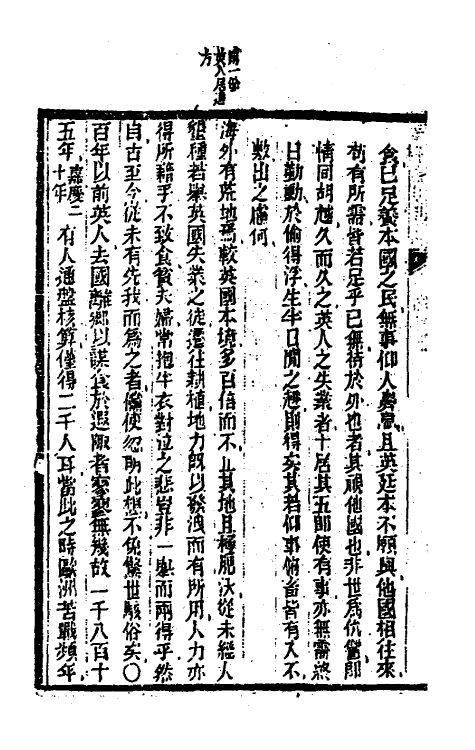 前一爺
英人居遠
方
食已足養本國之民無事仰人鼻息且英廷本不願與他國相往來
苟有所需皆若足乎已無待於外也者其視他國也非世爲仇讐卽
情同胡越久而久之英人之失業者十居其五卽使有事亦無需終
日勤動於偷得浮生半日閒之趣則得矣其若仰事俯畜皆有入不
敷出之虞何
海外有荒地焉較英國本境多百倍而不止其地且極肥沃從未經人
墾種若舉英國失業之徒遷往耕植地力旣以發洩而有所用人力亦
得所藉手不致食貧夫婦常抱牛衣對泣之悲豈非一舉而兩得乎然
自古至今從未有先我而爲之者倘使忽期此想不免驚世駭俗矣〇
百年以前英人去國離鄉以謀食於遐陬者寥寥無幾故一千八百十
五年嘉慶二十年有人通盤核算僅得二千人耳當此之時歐洲苦戰頻年